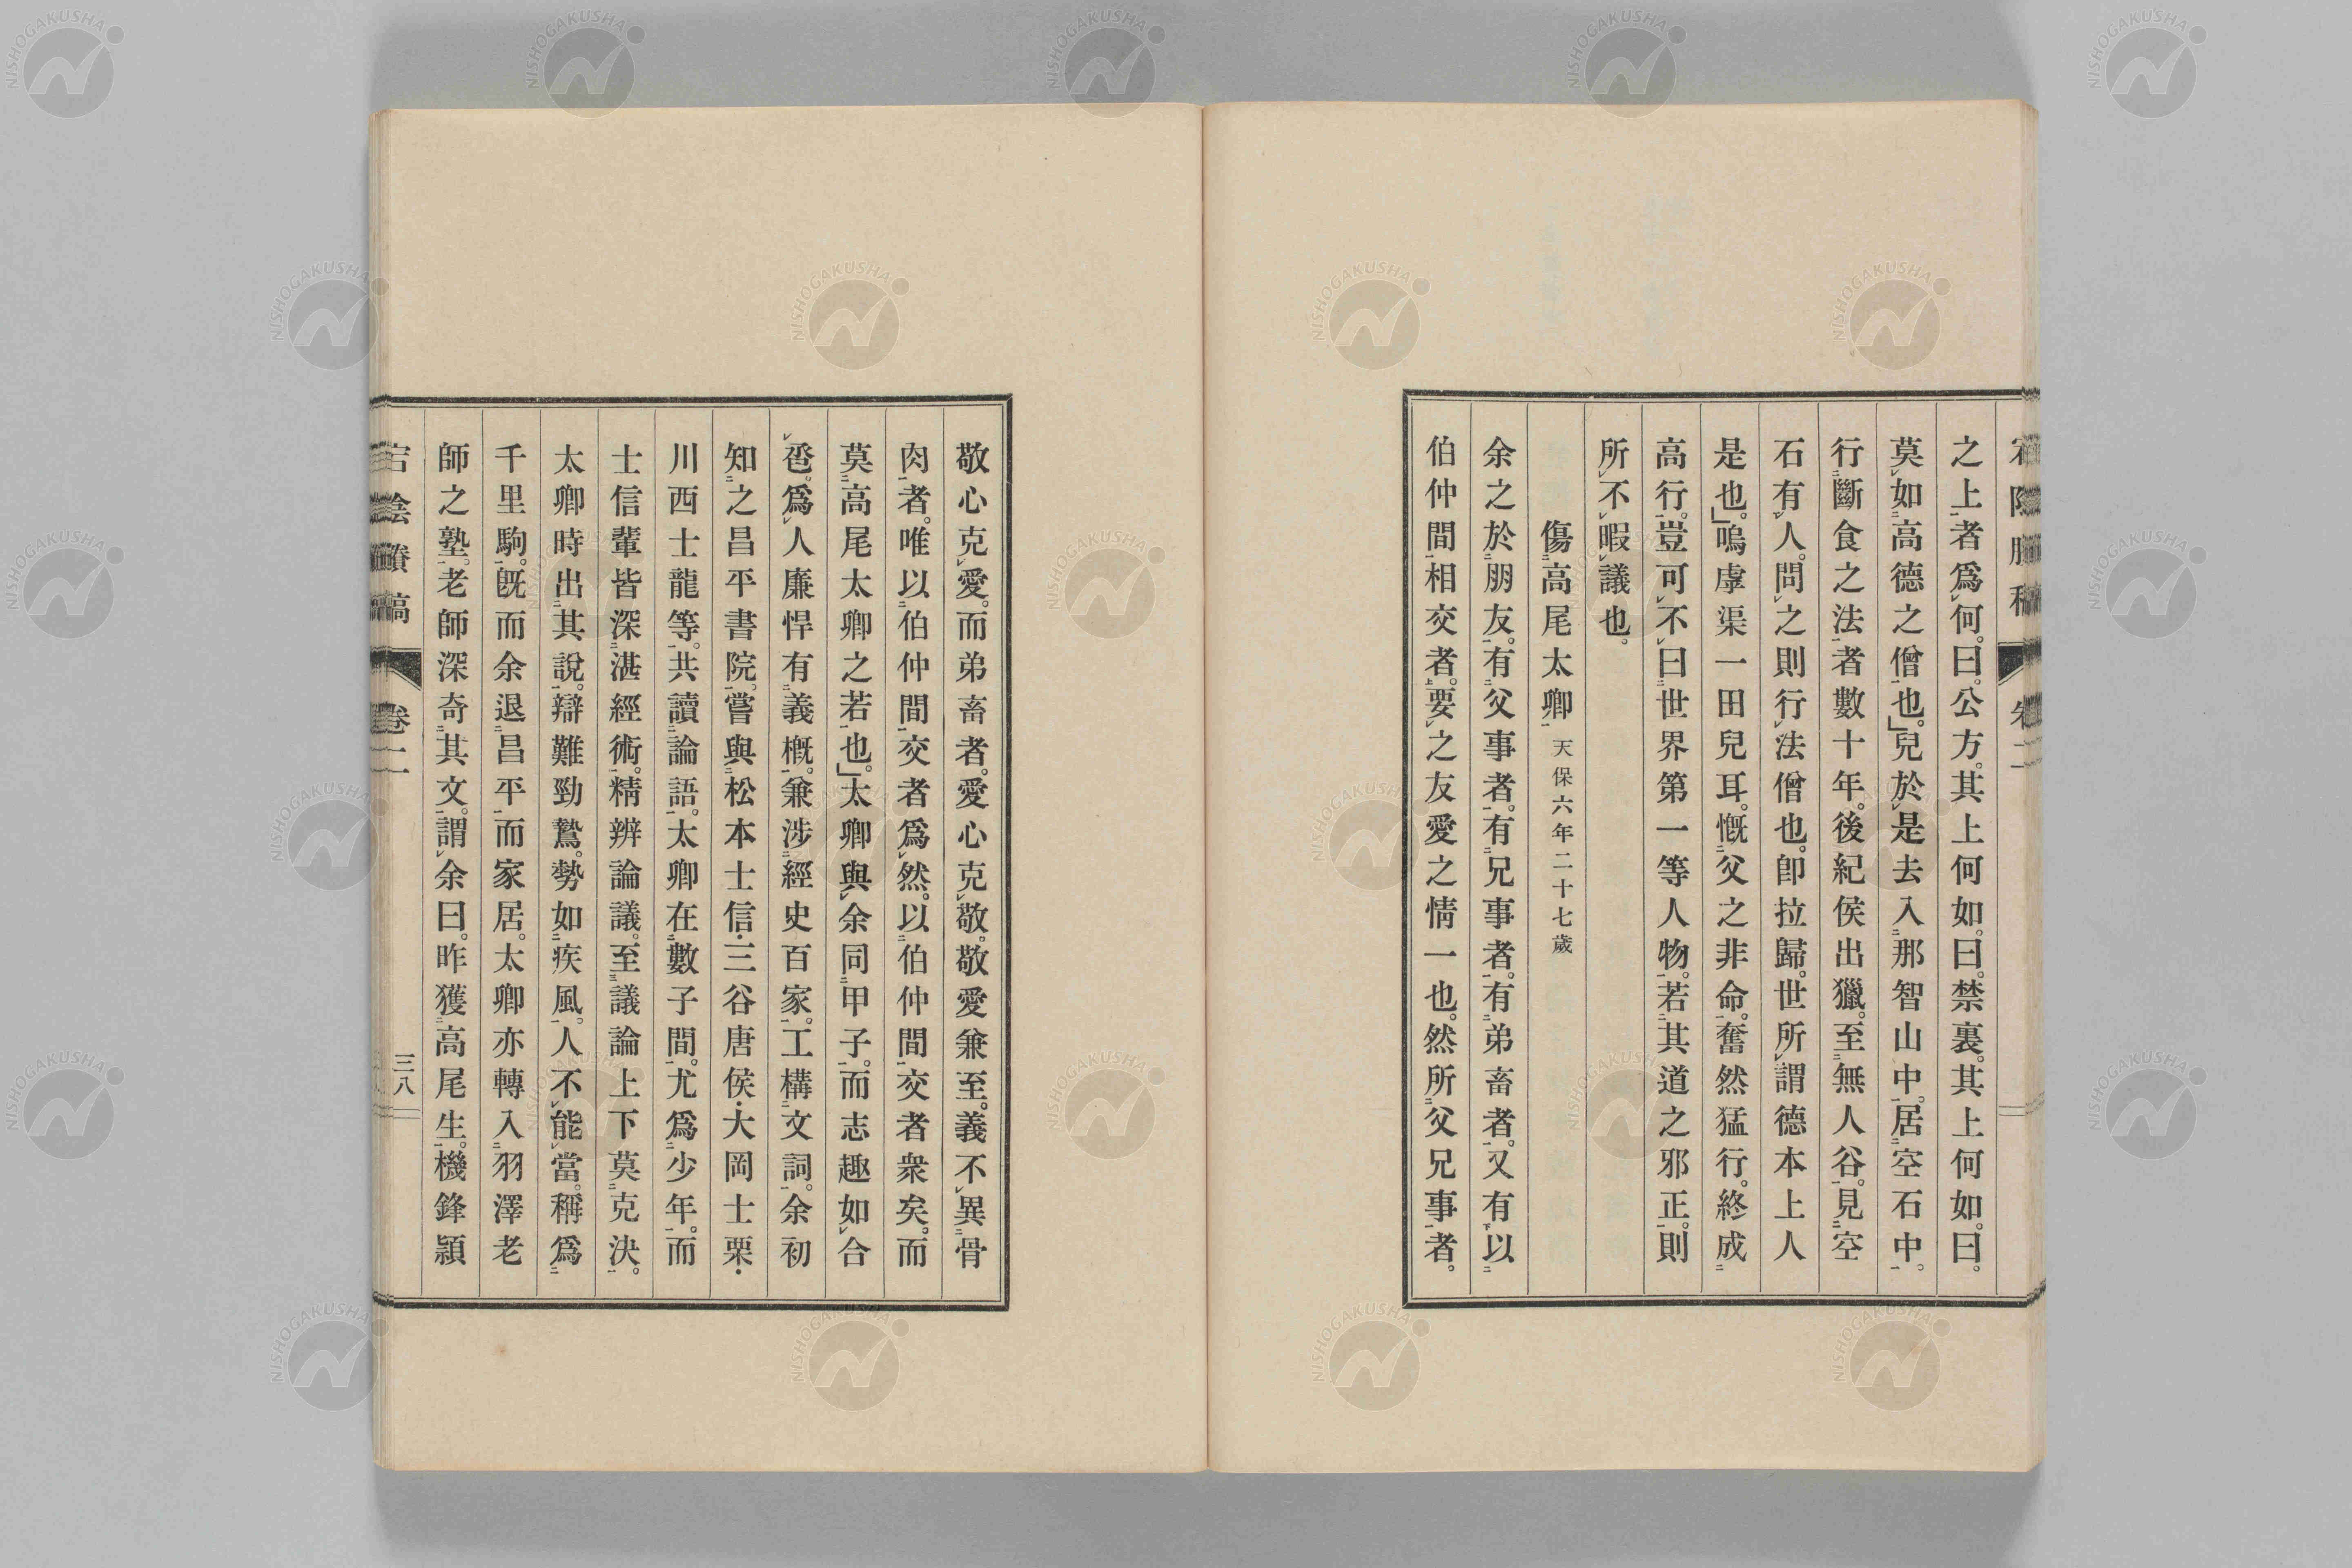 之上者爲何。曰。公方。其上何如。曰。禁裏。其上何如。曰。
莫如高德之僧也。」兒於是去入那智山中。居空石中。
行斷食之法者數十年。後紀侯出獵。至無人谷。見空
石有人。問之則行法僧也。卽拉歸。世所謂德本上人
是也。」嗚虖渠一田兒耳。慨父之非命。奮然猛行。終成
高行。豈可不曰世界第一等人物。若其道之邪正。則
所不暇議也。
傷高尾太卿 天保六年二十七歲
余之於朋友。有父事者。有兄事者。有弟畜者。又有以
伯仲間相交者。要之友愛之情一也。然所父兄事者。
敬心克愛。而弟畜者。愛心克敬。敬愛兼至。義不異骨
肉者。唯以伯仲間交者爲然。以伯仲間交者衆矣。而
莫高尾太卿之若也。」太卿與余同甲子。而志趣如合
卺。爲人廉悍有義槪。兼涉經史百家。工構文詞。余初
知之昌平書院。嘗與松本士信・三谷唐侯・大岡士栗・
川西士龍等。共讀論語。太卿在數子間。尤爲少年。而
士信輩皆深湛經術。精辨論議。至議論上下莫克決。
太卿時出其說。辯難勁鷙。勢如疾風。人不能當。稱爲
千里駒。旣而余退昌平。而家居。太卿亦轉入羽澤老
師之塾。老師深奇其文。謂余曰。昨獲高尾生。機鋒頴
卷二
三八